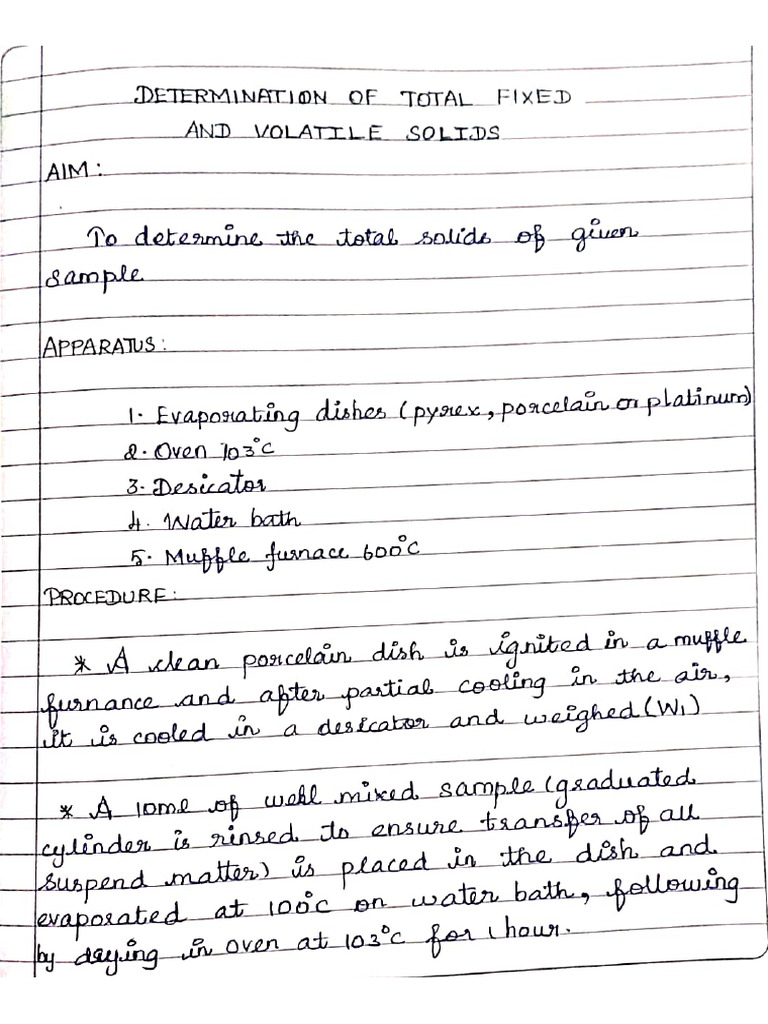 DETERMINATION OF TOTAL FIXED
AND VOLATILE SOLIDS
AIM:
To determine the total solids of given
sample
APPARATUS:
1. Evaporating dishes (pyrex, porcelain or platinum)
2. Oven 103°C
3. Desicator
4. Water bath
5. Muffle furnace 600°C
PROCEDURE:
* A clean porcelain dish is ignited in a muffle
furnance and after partial cooling in the air,
it is cooled in a desicator and weighed (W1)
* A 10ml of well mixed sample (graduated
cylinder is rinsed to ensure transfer of all
suspend matter) is placed in the dish and
evaporated at 100°C on water bath, following
by drying in oven at 103°C for 1 hour.